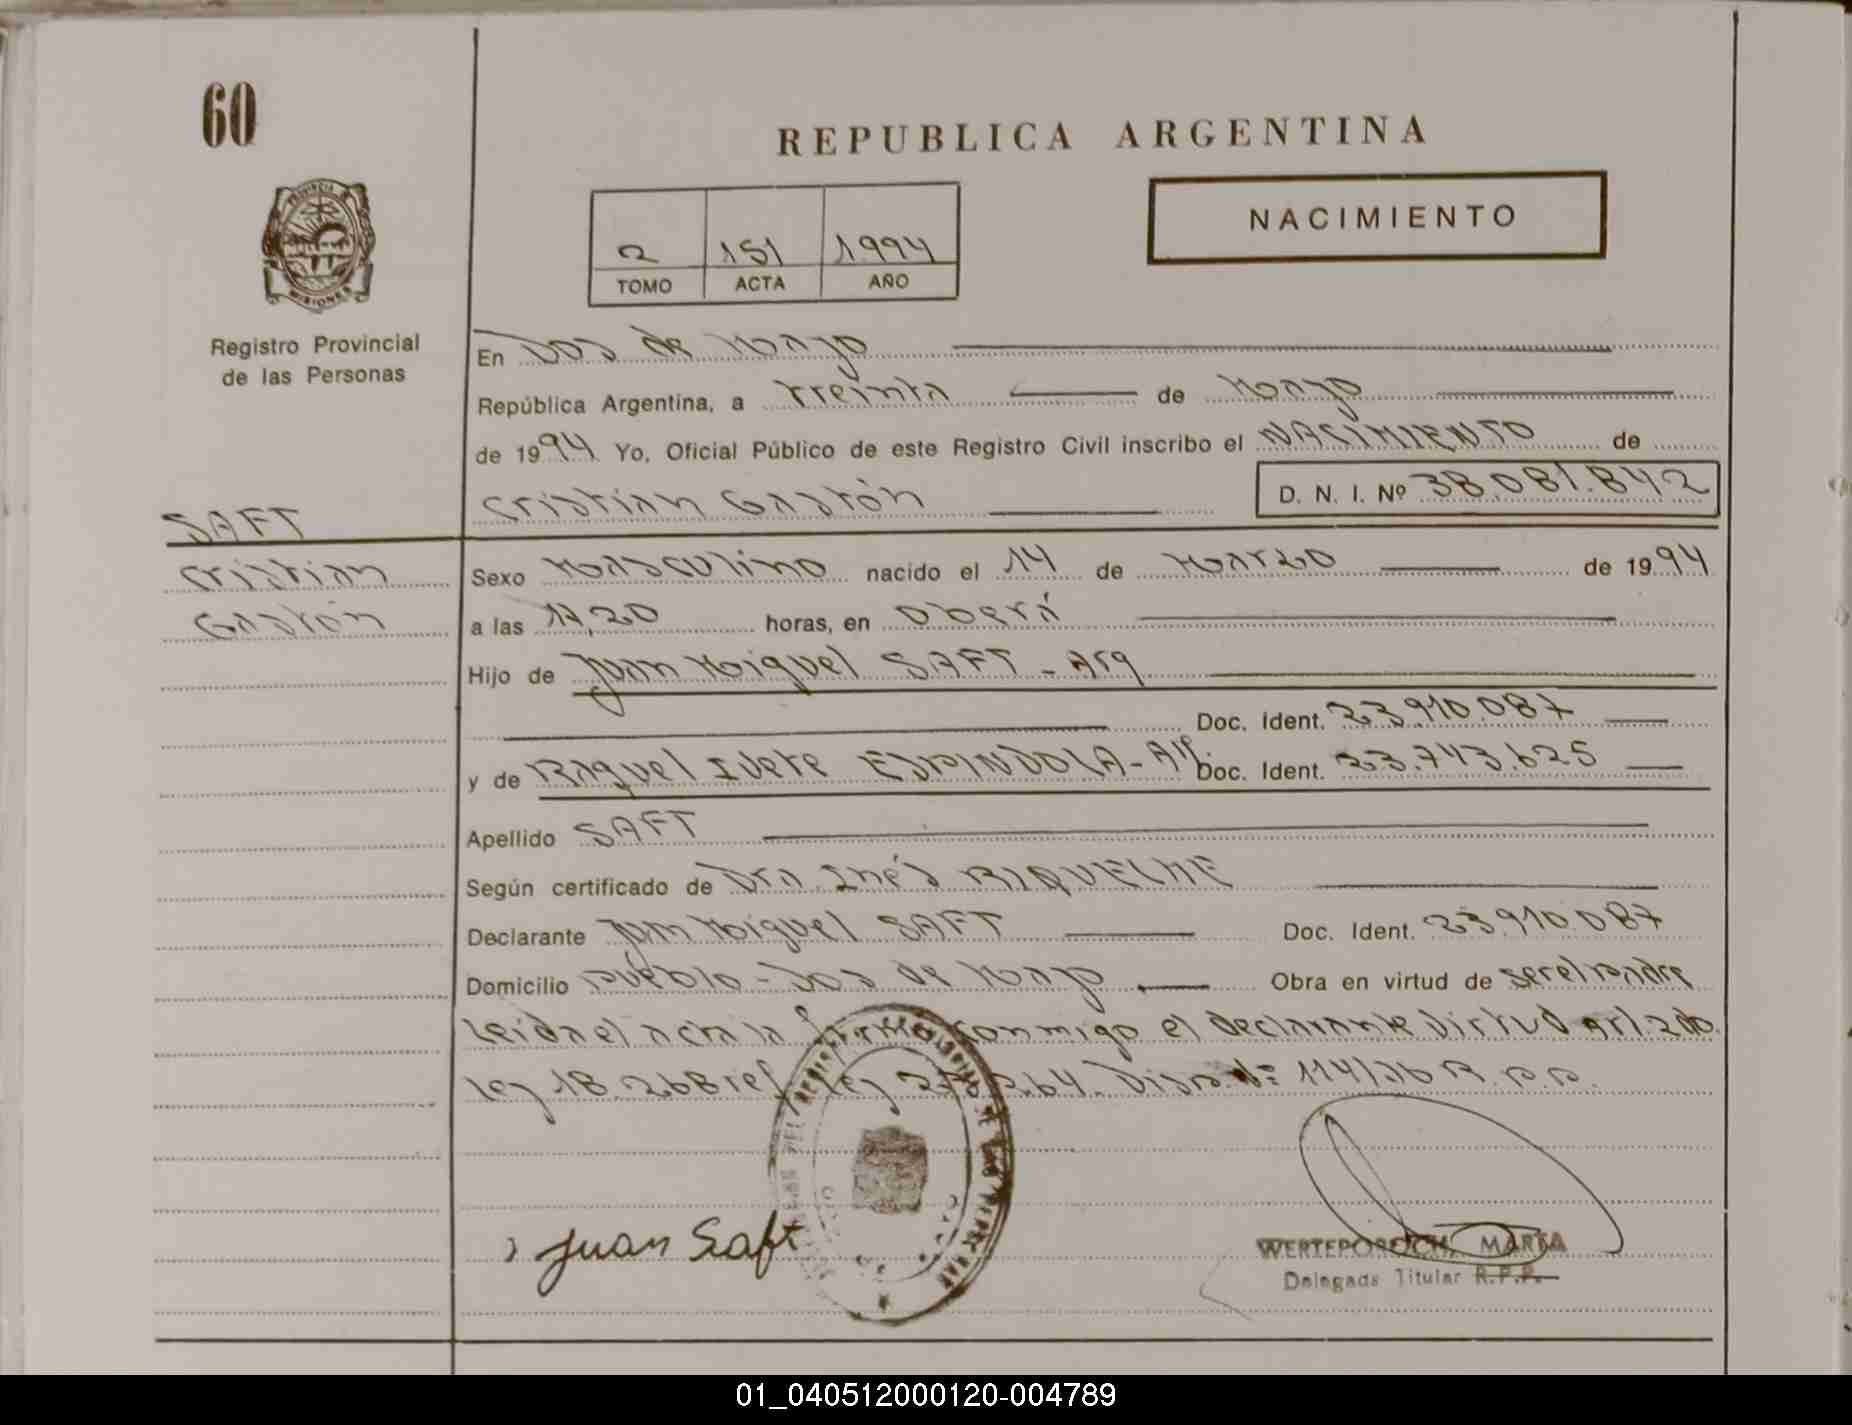 60
REPUBLICA ARGENTINA
PROVINCIA DE
MISIONES
NACIMIENTO
2 151 1.994
TOMO ACTA AÑO
Registro Provincial
de las Personas
En Dos de Mayo
República Argentina, a treinta de Mayo
de 1994 Yo, Oficial Público de este Registro Civil inscribo el NACIMIENTO de
Cristian Gastón D. N. I. Nº 38.081.842
SAFT
Cristian
Gastón
Sexo Masculino nacido el 14 de Marzo de 1994
a las 17,20 horas, en Oberá
Hijo de Juan Miguel SAFT - Arg
Doc. Ident. 23.910.087
y de Raquel Ivete ESPINDOLA - Arg. Doc. Ident. 23.743.625
Apellido SAFT
Según certificado de Dra. Inés RIQUELME
Declarante Juan Miguel SAFT Doc. Ident. 23.910.087
Domicilio Pueblo - Dos de Mayo Obra en virtud de ser el padre
Leida el acta la firma conmigo el declarante Virtud art. 2do.
Ley 18.268 ref. Ley 114/ R.P.P.
Juan Saft
WERTEPOROCH, MARTA
Delegada Titular R.P.P.
01_040512000120-004789